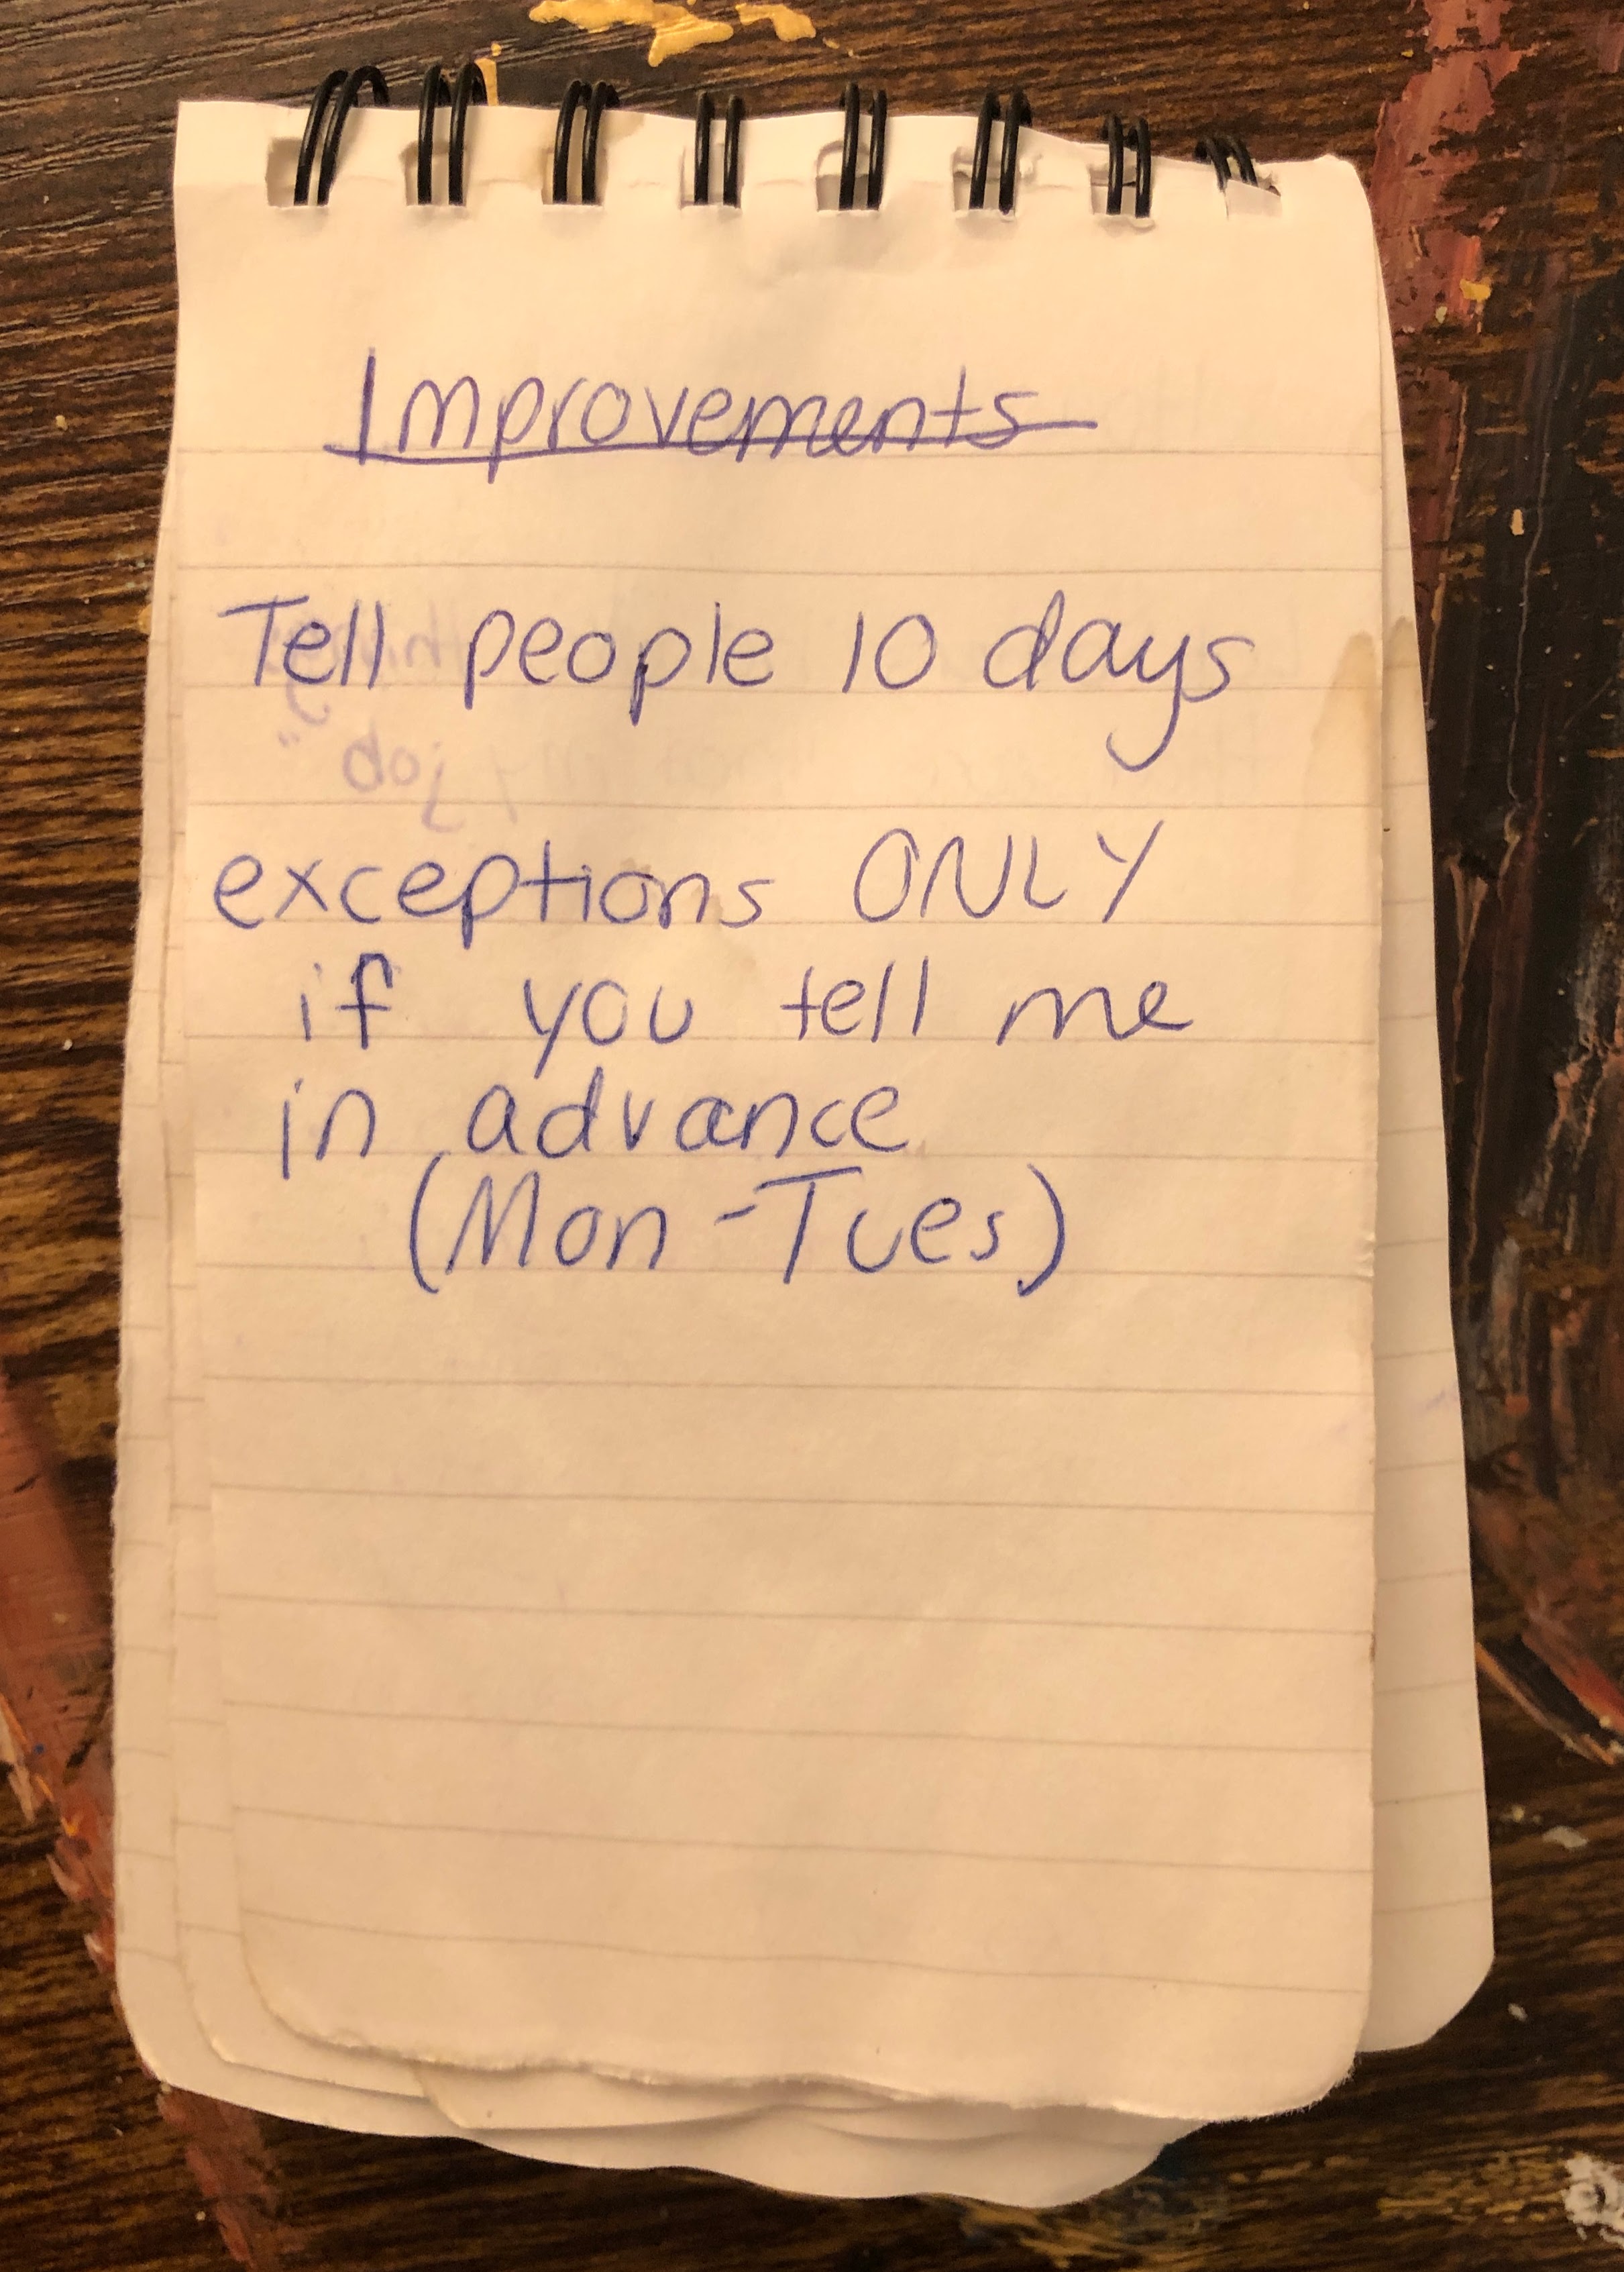 Improvements
Tell people 10 days
exceptions ONLY
if you tell me
in advance
(Mon-Tues)